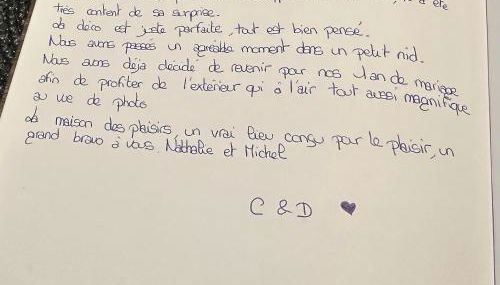 a été
très content de sa surprise.
La déco est juste parfaite, tout est bien pensé.
Nous avons passés un agréable moment dans un petit nid.
Nous avons déjà décidé de revenir pour nos 1 an de mariage
afin de profiter de l'extérieur qui à l'air tout aussi magnifique
au vue de photo
La maison des plaisirs, un vrai lieu conçu par le plaisir, un
grand bravo à vous Nathalie et Michel
C & D ♥